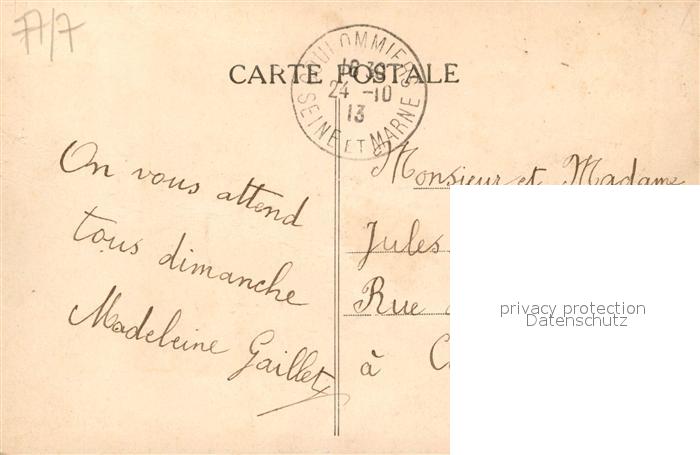 77/7
CARTE POSTALE
COULOMMIERS
16 30
24 -10
13
SEINE ET MARNE
On vous attend
tous dimanche
Madeleine Gaillet
Monsieur et Madame
Jules
Rue
à
privacy protection
Datenschutz